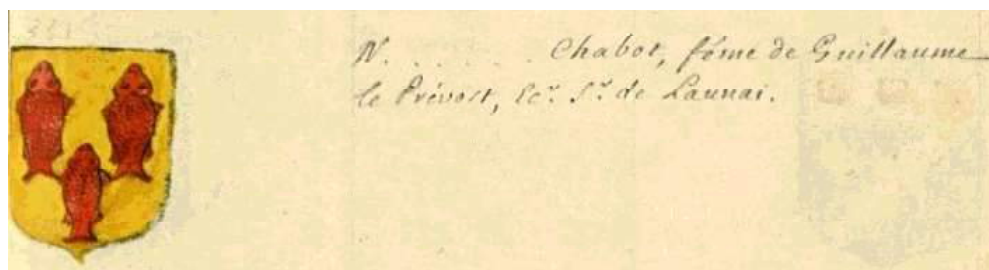 351
N. . . . . . Chabot, féme de Guillaume
le Prévost, Ecr. Sr. de Launai.